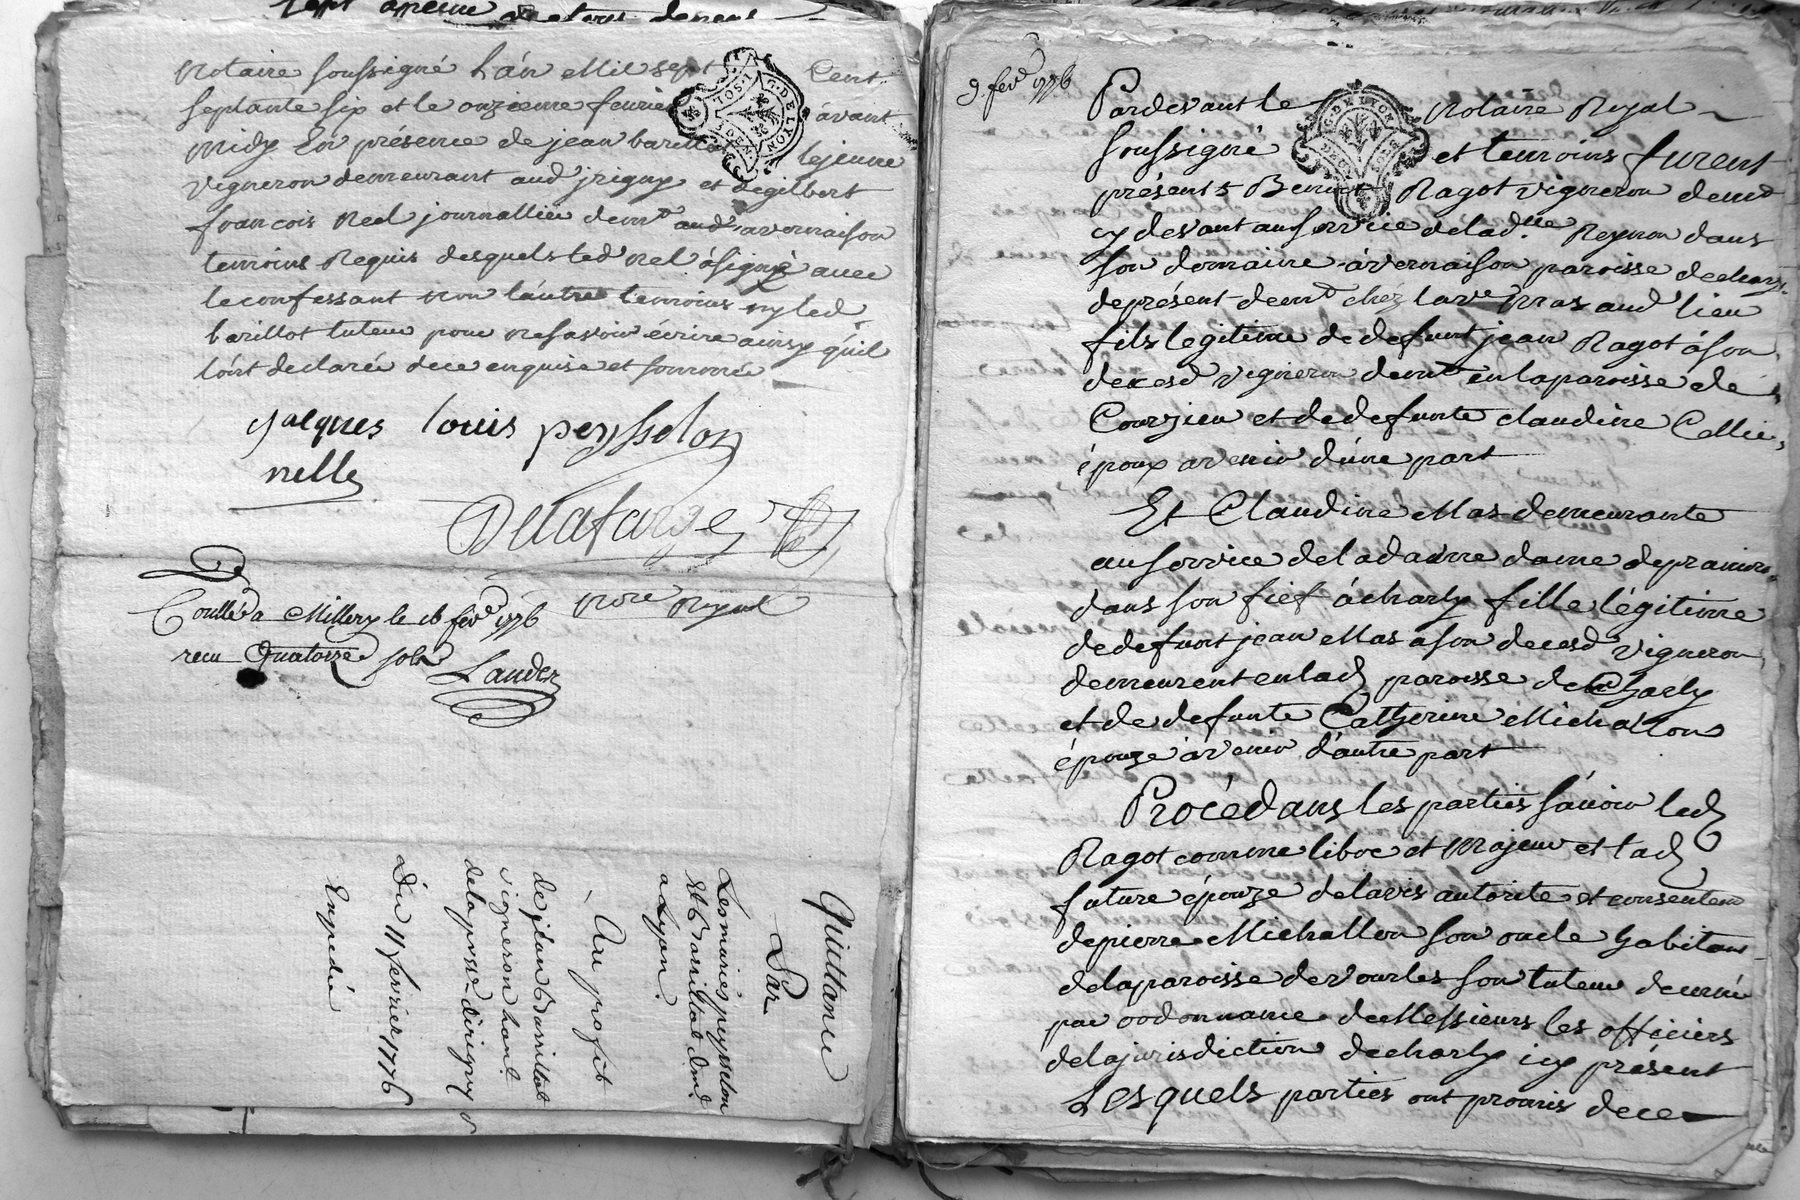 notaire soussigné L'án Mil sept Cent
septante six et le onzieme fevrier ávant
midy En présence de jean barillot lejeune
vigneron demeurant aud jrigny et de gilbert
francois nel journallier demt aud. vernaison
temoins Requis desquels led nel á signé avec
le confessant non láutre temoins ny led.
barillot tuteur pour ne savoir écrire ainsy qúil
lónt declarée de ce enquise et sommé
jacques louis peysselon
nelle
Delafarge
nore Royal
Conllé a Millery le 16 fevr 1776
recu Quatorze sols
Lander
Quittance
Par
Les mariés peysselon
et Barillot dmt
a Lyon.
Au profit
de jean Barillot
vigneron habt
de la prsse d'irigny
Du 11 fevrier 1776
Expedié
9 fevr 1776
Pardevant le notaire Royal
soussigné et temoins furent
présents Benoit Ragot vigneron demt
cy devant au service de lad. lle Reynon dans
son domaine á vernaison paroisse de charly
de présent demt chez la ve Mas aud lieu
fils legitime de defunt jean Ragot á son
deces vigneron demt en la paroisse de
Courzieu et de defunte claudine Collier
époux avenir d'úne part
Et Claudine Mas demeurante
au service de la dame de pramiral
dans son fief á charly fille légitime
de defunt jean Mas a son deces vigneron
demeurent en lad paroisse de Charly
et de defunte Catherine Michallon
épouze ávenir d'autre part
Procédans les parties sávoir led
Ragot comme libre et Majeur et lad
future épouze de lavis autorite et consentem
de pierre Michallon son oncle habitant
de la paroisse de vourles son tuteur decerné
par ordonnance de Messieurs les officiers
de la jurisdiction de charly icy présent
Lesquels parties ont promis de ce